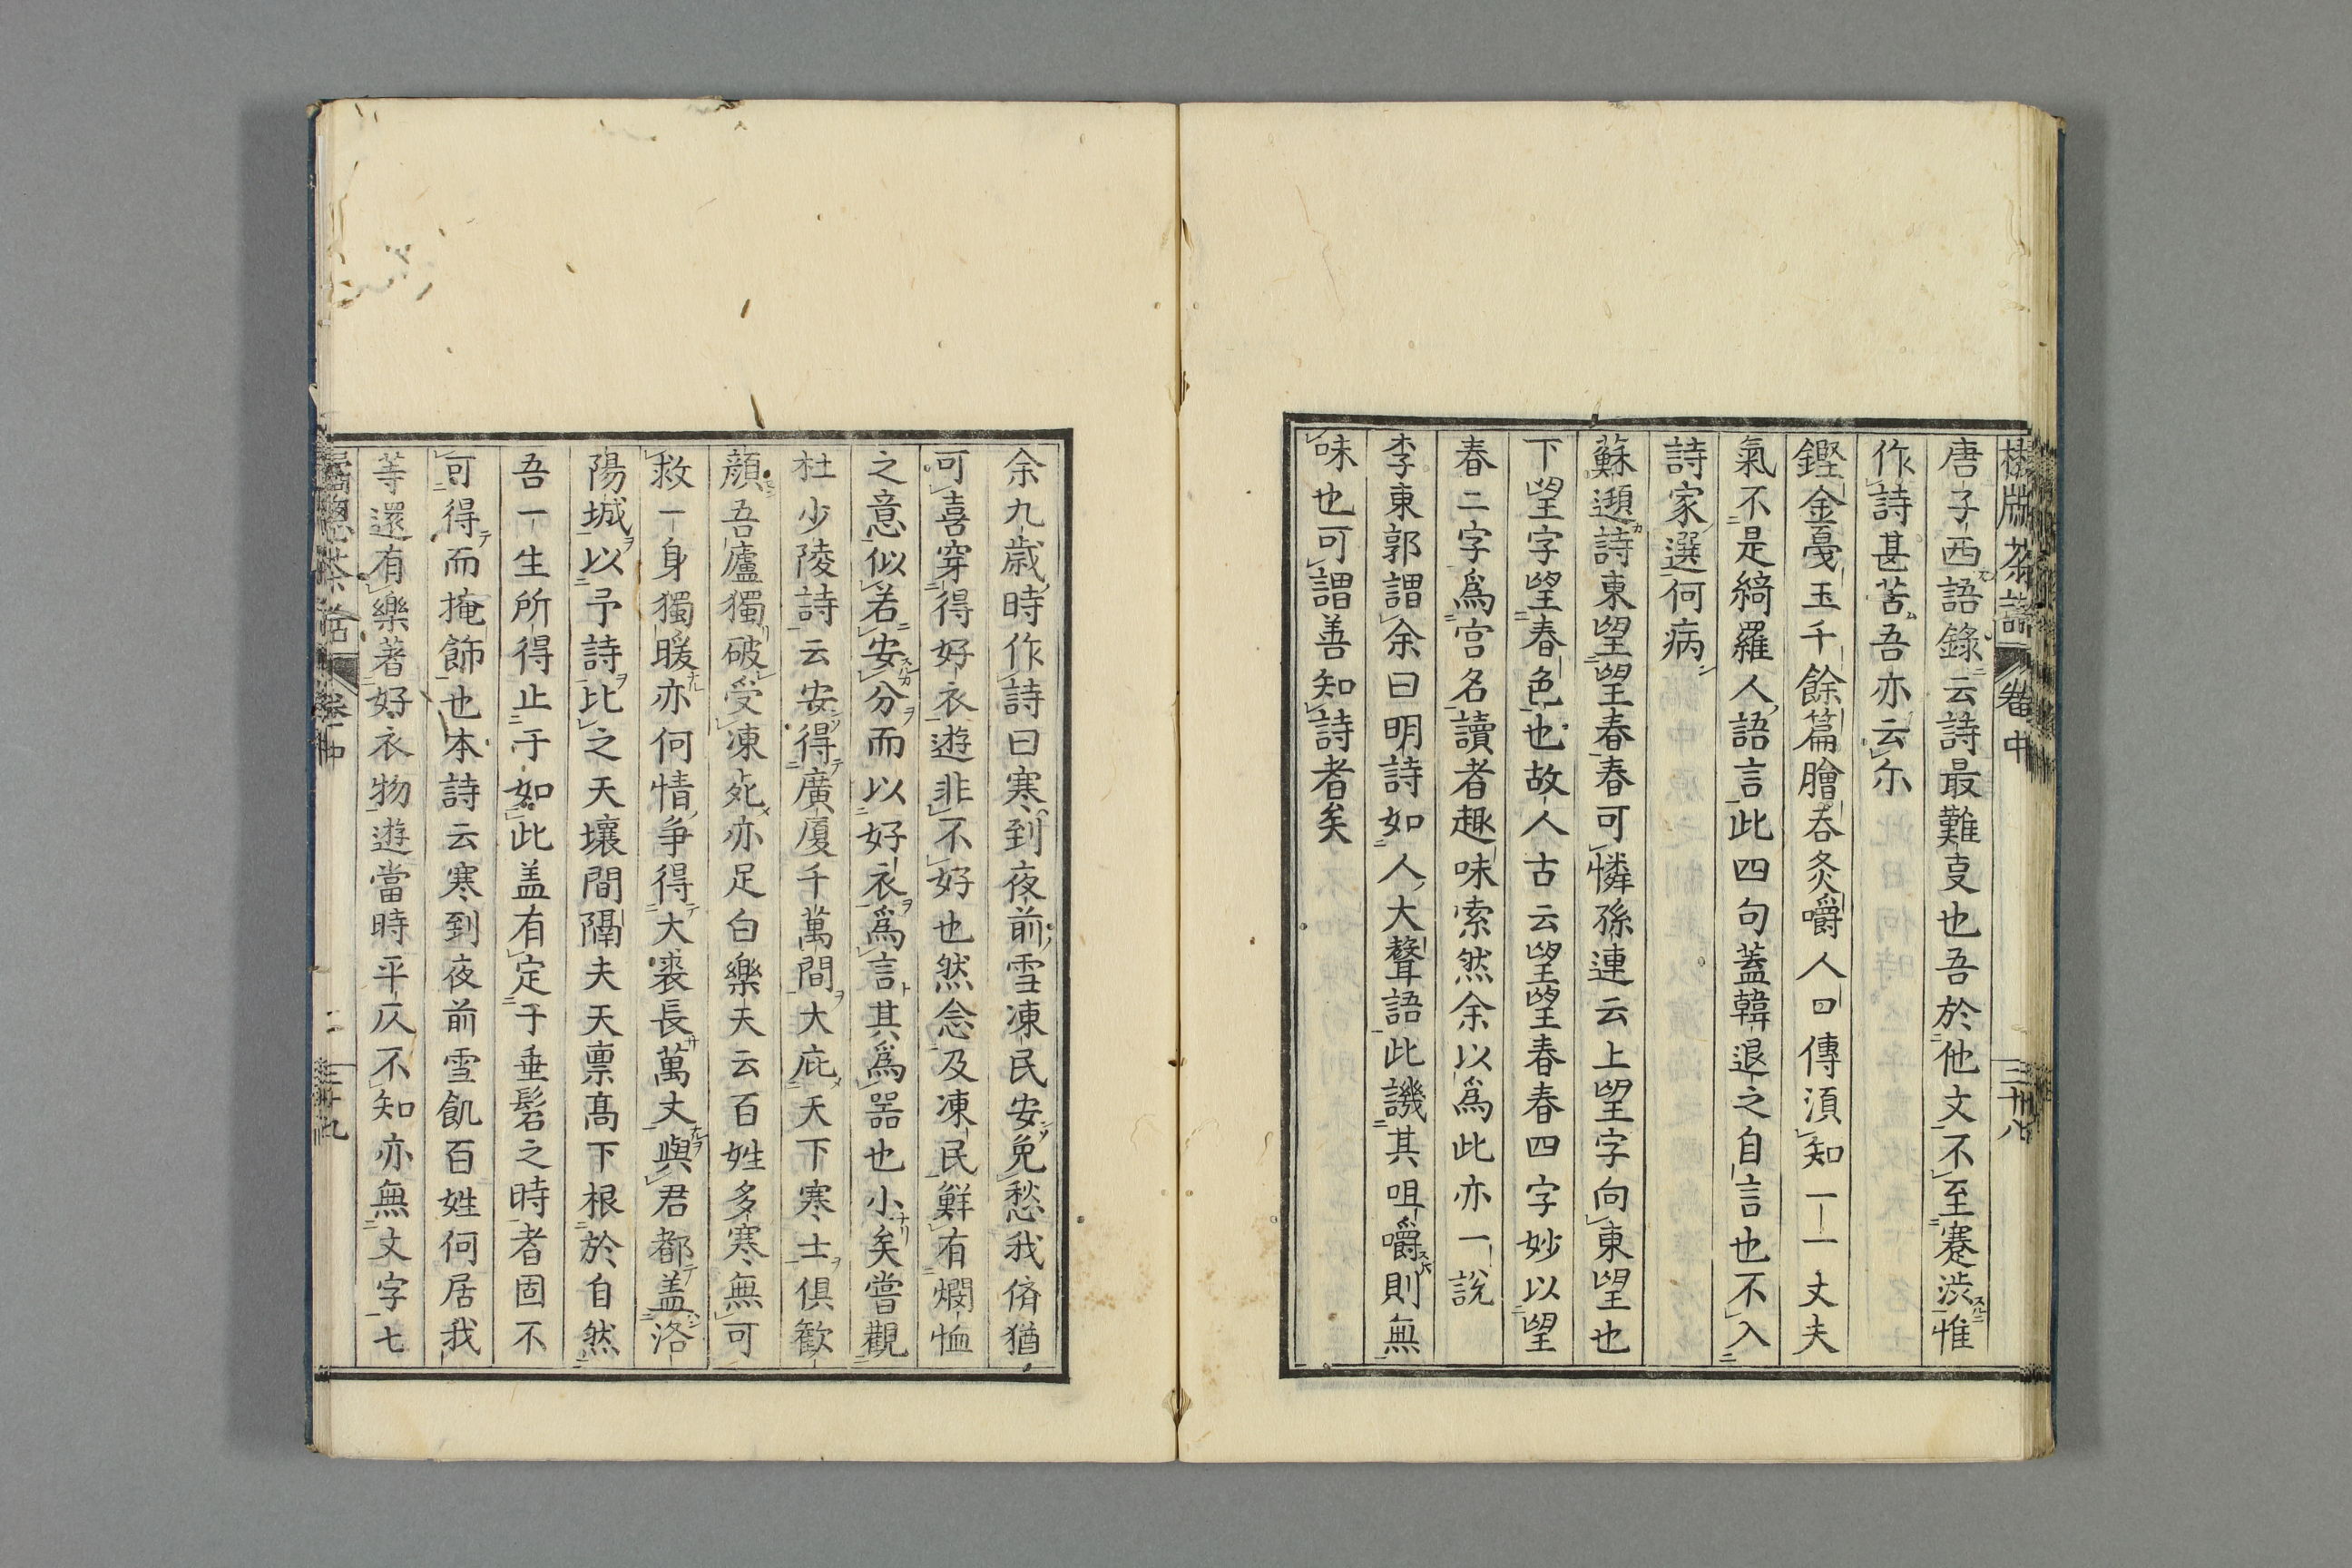 唐子西語錄云詩最難叓也吾於他文不至蹇渋惟
作詩甚苦吾亦云尓
鏗金戞玉千餘篇膾呑炙嚼人口傳湏知一一丈夫
氣不是綺羅人語言此四句蓋韓退之自言也不入
詩家選何病
蘇頲詩東望望春春可憐孫連云上望字向東望也
下望字望春色也故人古云望望春春四字妙以望
春二字爲宮名讀者趣味索然余以爲此亦一説
李東郭謂余曰明詩如人大聲語此譏其咀嚼則無
味也可謂善知詩者矣
卷中
三十八
余九歳時作詩曰寒到夜前雪凍民安免愁我儕猶
可喜穿得好衣遊非不好也然念及凍民鮮有憫恤
之意似若安分而以好衣爲言其爲噐也小矣嘗觀
杜少陵詩云安得廣厦千萬間大庇天下寒士俱歡
顔吾廬獨破受凍死亦足白樂天云百姓多寒無可
救一身獨暖亦何情争得大裘長萬丈與君都盖洛
陽城以予詩比之天壤間隔夫天禀髙下根於自然
吾一生所得止于如此盖有定于垂髫之時者固不
可得而掩飾也本詩云寒到夜前雪飢百姓何居我
等還有樂著好衣物遊當時平仄不知亦無文字七
卷中
三十九